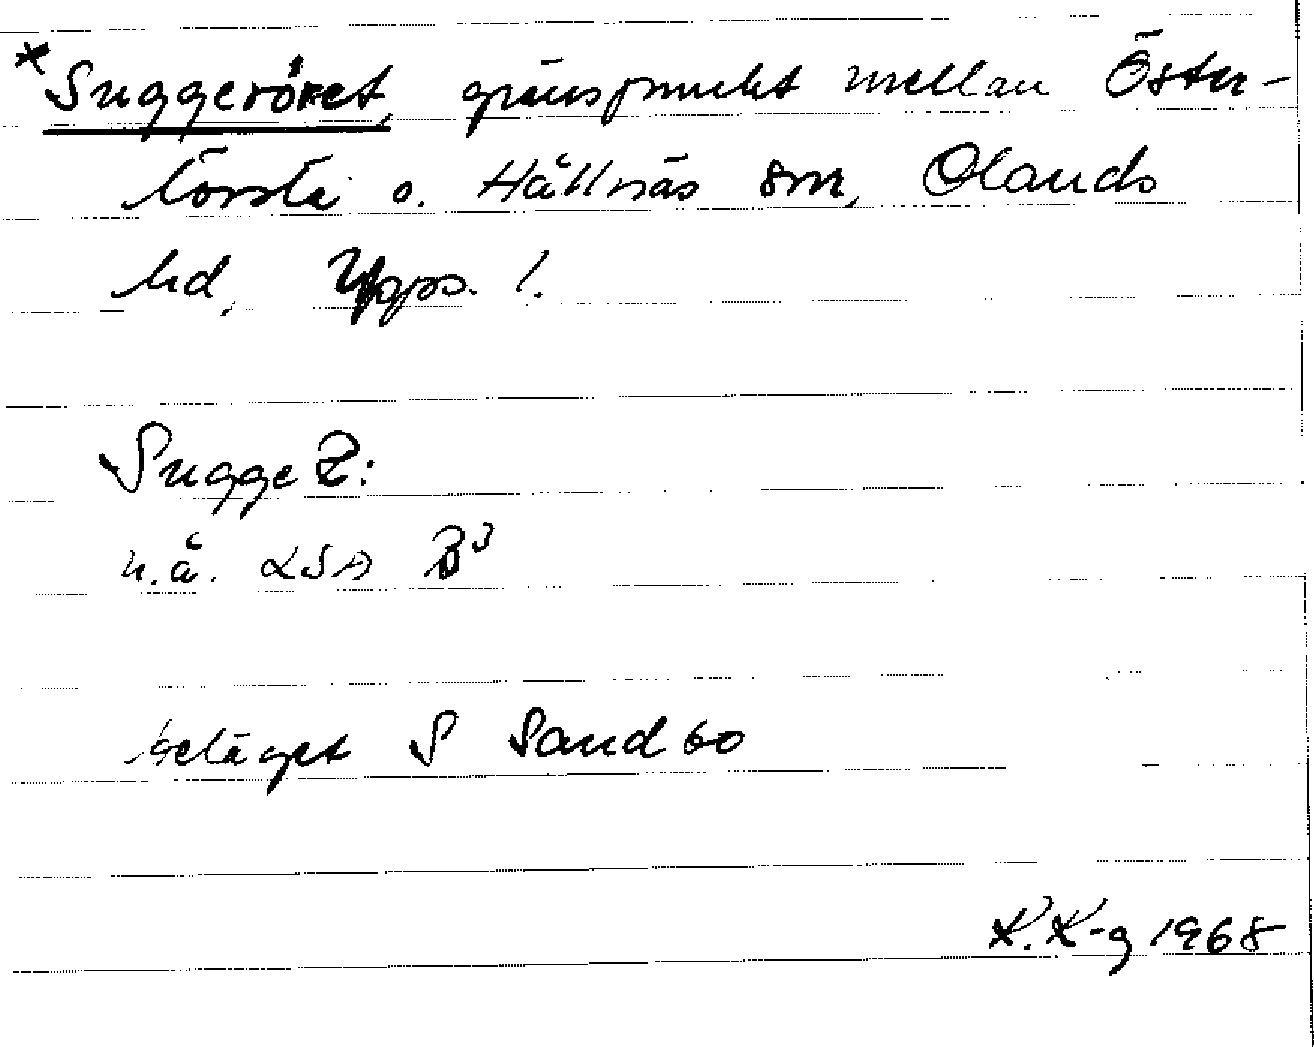 *Suggeröret, gränspunkt mellan Öster-
lövsta o. Hållnäs snr, Olands
hd, Upps. l.
Sugge R:
n.ä. LSA B³
beläget S Sandbo
K. K-g 1968